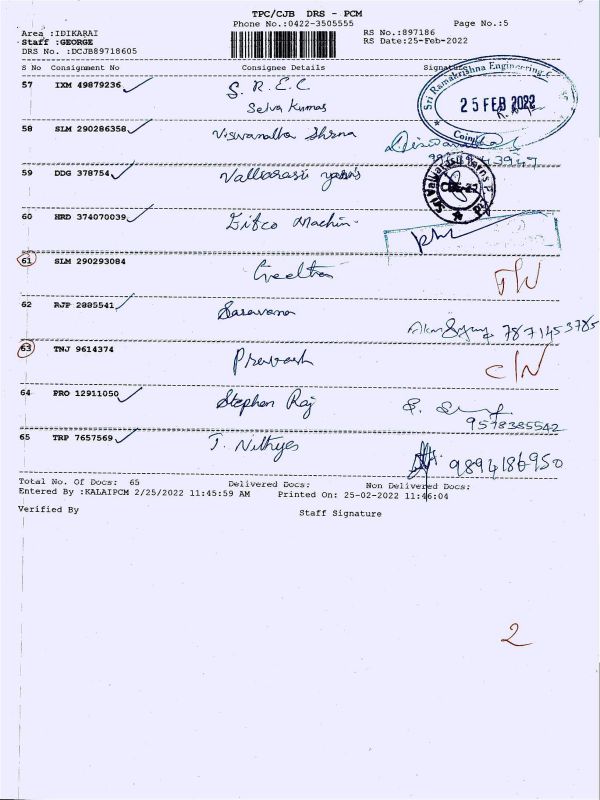 TPC/CJB DRS - PCM
Phone No.:0422-3505555 Page No.:5
Area :IDIKARAI RS No.:897186
Staff :GEORGE RS Date:25-Feb-2022
DRS No. :DCJB89718605
S No Consignment No Consignee Details Signature
Sri Ramakrishna Engineering
25 FEB 2022
57 IXM 49879236 S. R. E. C
Selva Kumar
58 SLM 290286358 Viswanatha
59 DDG 378754
60 HRD 374070039 Machin
61 SLM 290293084
62 RJP 2885541 Saravana 7871453785
63 TNJ 9614374 Pravash C/N
64 PRO 12911050 Stephen Raj
9578385542
65 TRP 7657569 T. Nithyes 9894186950
Total No. Of Docs: 65 Delivered Docs: Non Delivered Docs:
Entered By :KALAIPCM 2/25/2022 11:45:59 AM Printed On: 25-02-2022 11:46:04
Verified By Staff Signature
2